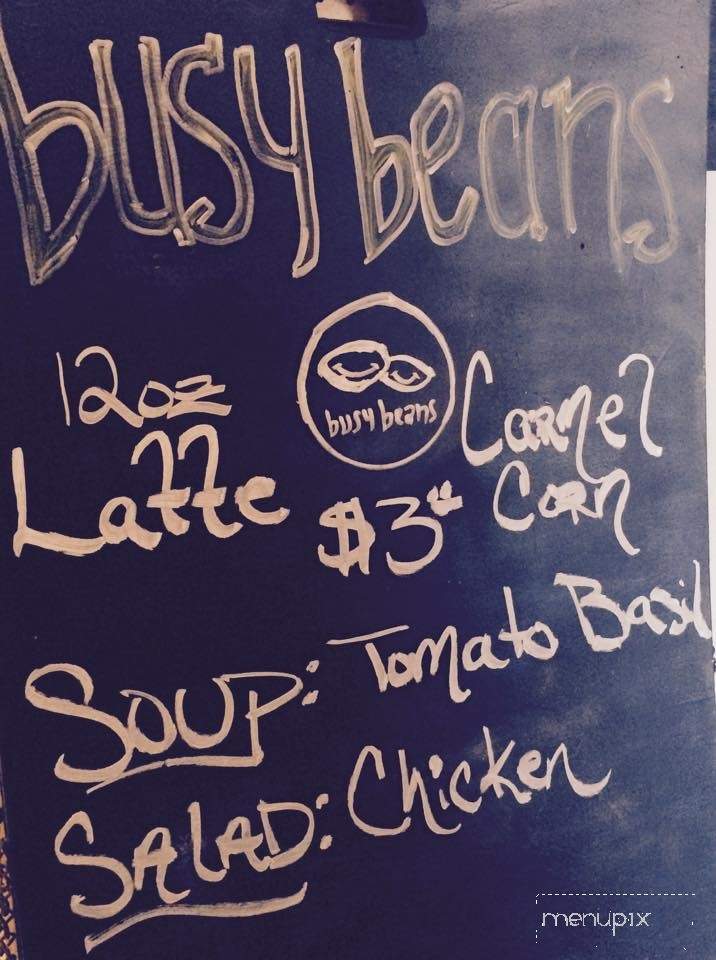 busy beans
busy beans
12oz Carmel
Latte Corn
$3.00
Soup: Tomato Basil
Salad: Chicken
menupix